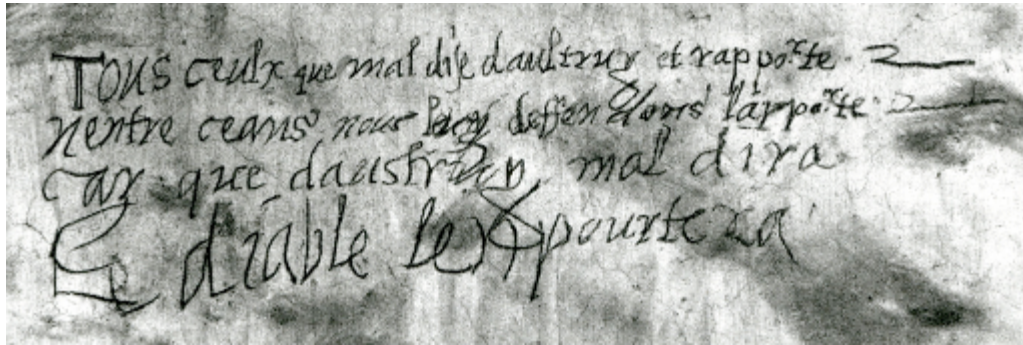 Tous ceulx que mal dise daultruy et rapporte
Nentre ceans nous luy deffendons la porte
Car que daustruy mal dira
Le diable lexpourtera